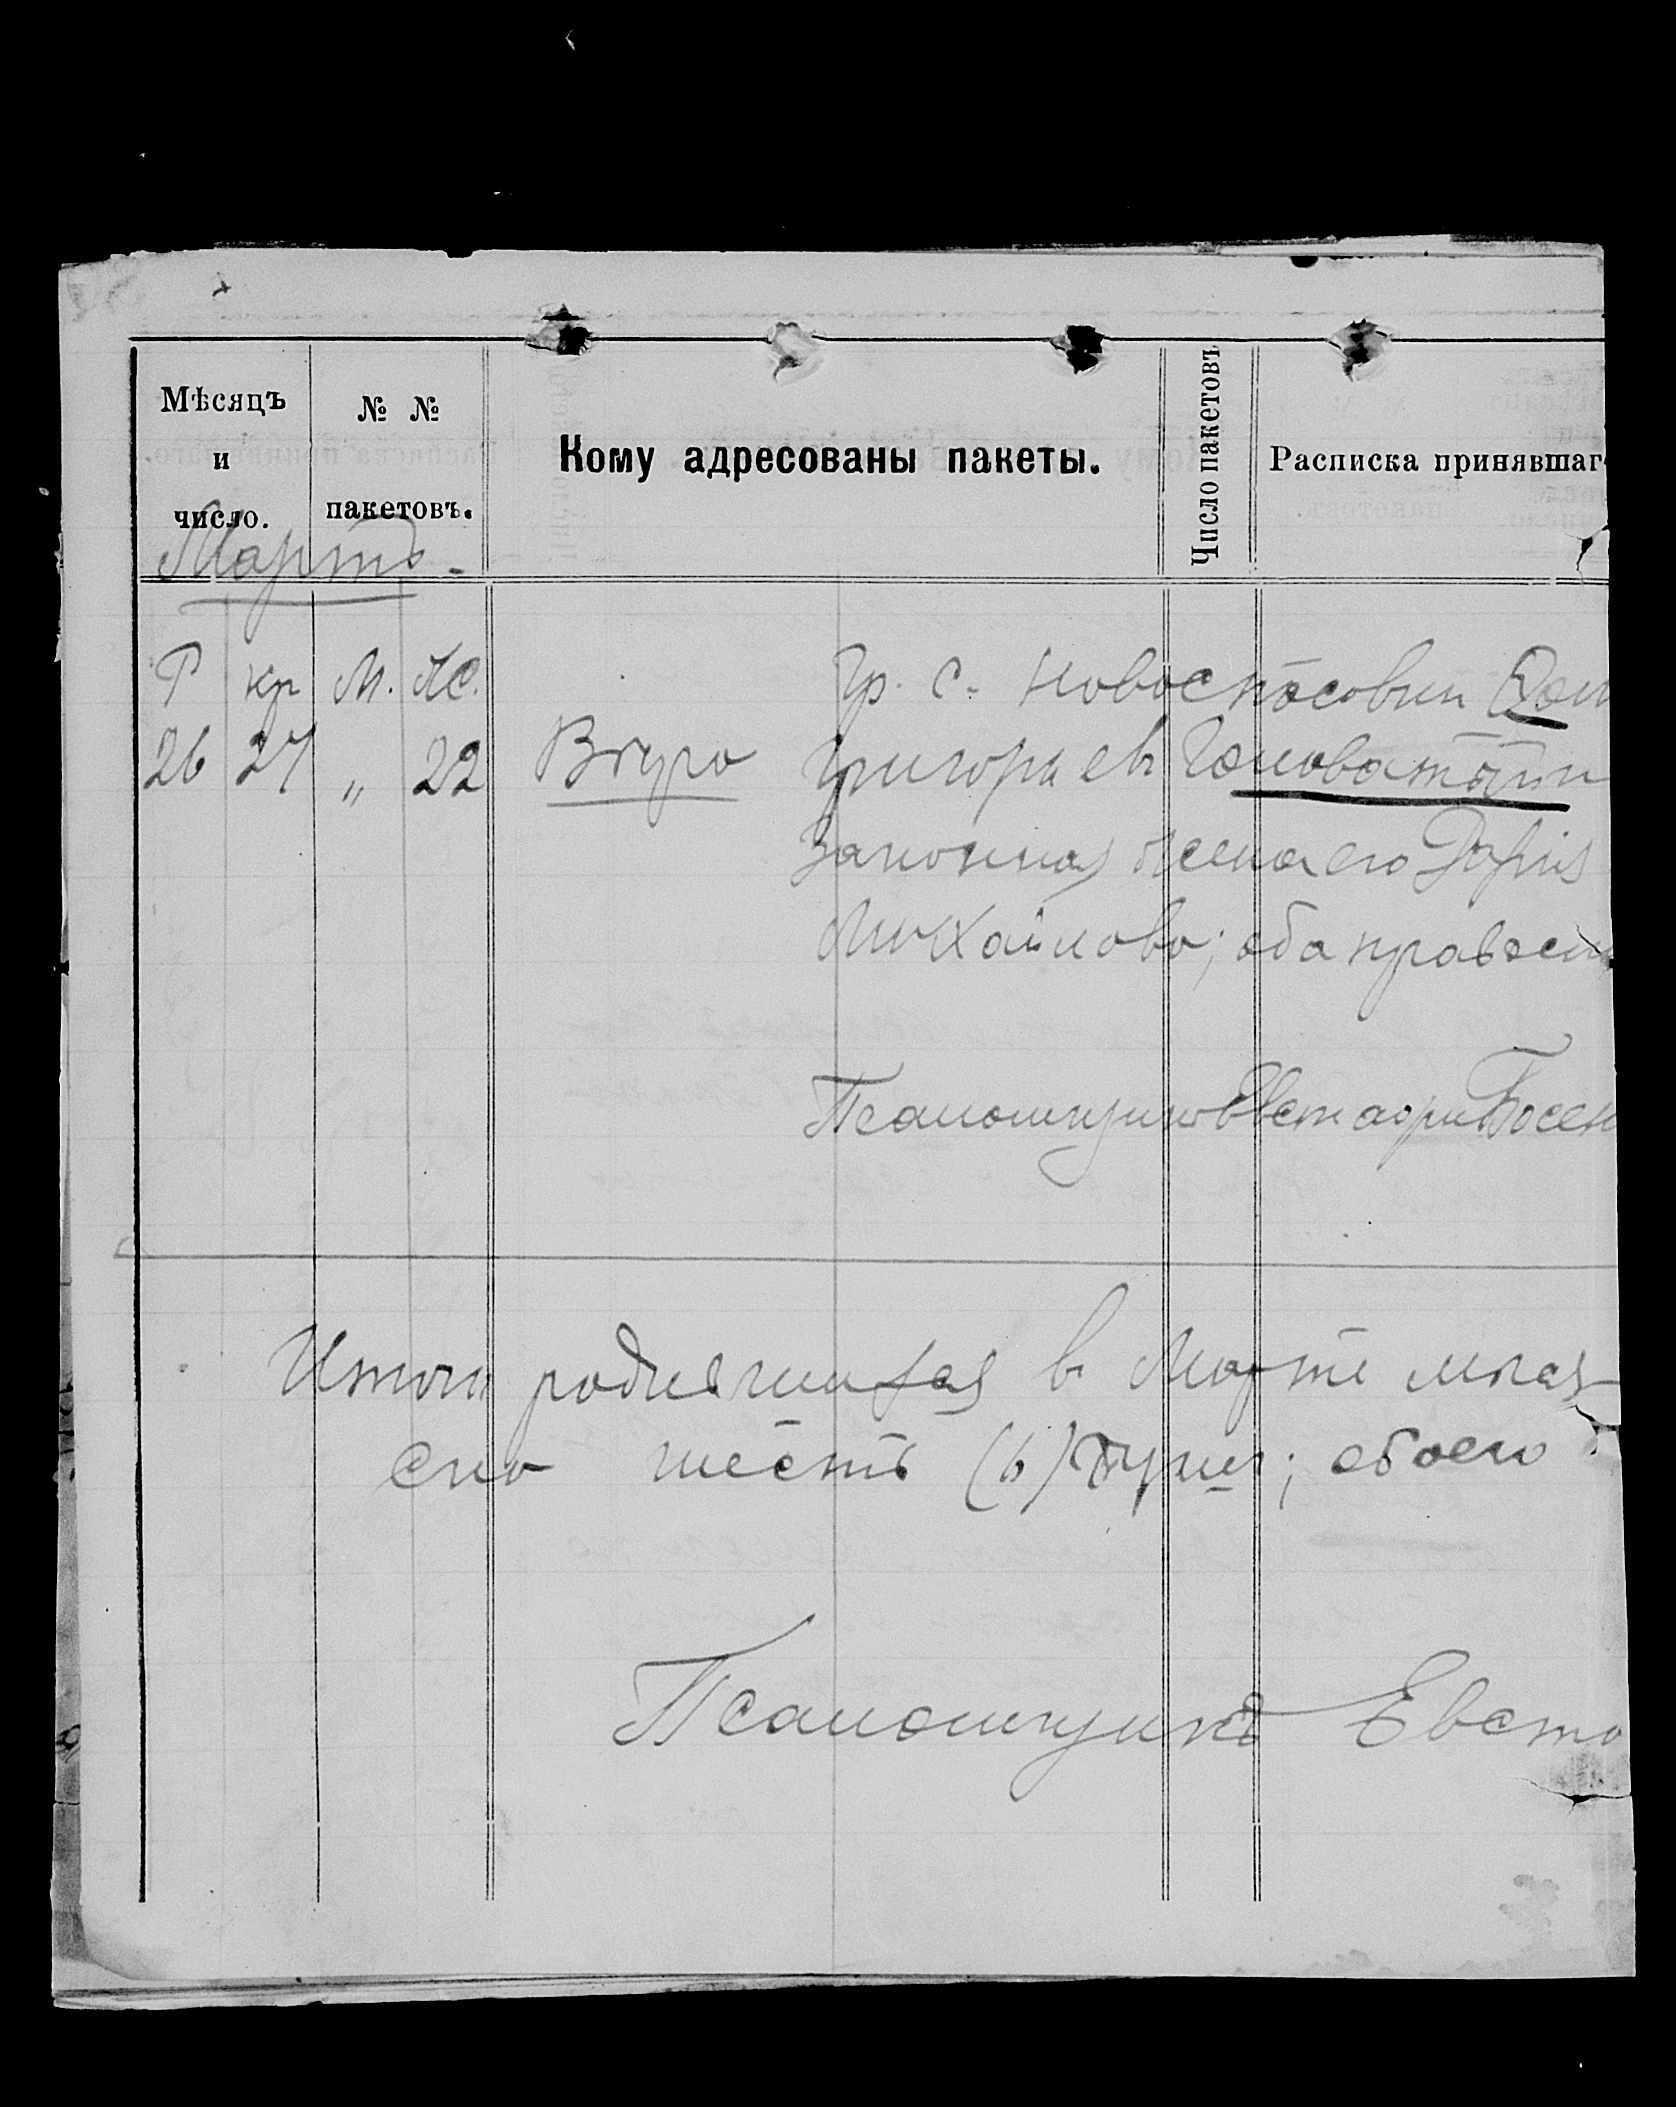 Мѣсяцъ и число.
№ № пакетовъ.
Кому адресованы пакеты.
Число пакетовъ
Расписка принявшаг
Мартъ.
Р кр М. Ж.
Гр. с. Новоспасовки
26 27 „ 22 Вѣра Григорьев Головатый
Законная жена его Дарія
Михайлова; оба правосл
Псаломщик Евстафи
Итого родившихся в Марте меся
сто шесть (6) душ; обоего
Псаломщикъ Евста